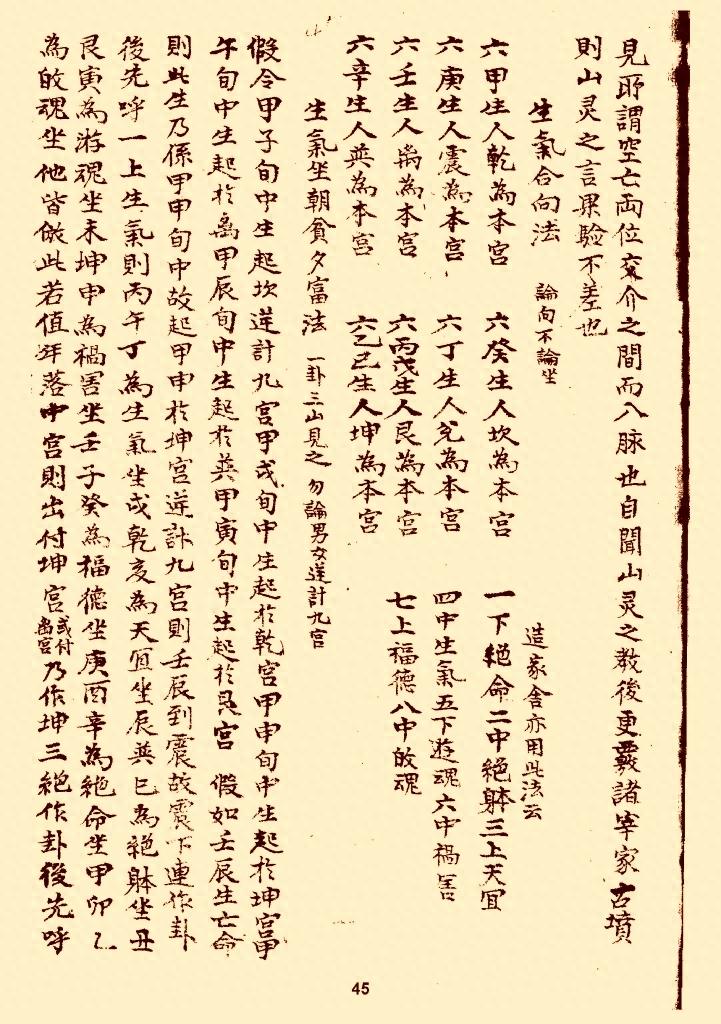 見所謂空亡両位交介之間而入脉也自聞山灵之教後更覈諸宰家古墳
則山灵之言果验不差也
生氣合向法 論向不論坐 造家舍亦用此法云
六甲生人乾為本宮 六癸生人坎為本宮 一下絕命二中絕躰三上天宜
六庚生人震為本宮 六丁生人兊為本宮 四中生氣五下遊魂六中禍害
六壬生人离為本宮 六丙戊生人艮為本宮 七上福德八中皈魂
六辛生人巽為本宮 六乙己生人坤為本宮
生氣坐朝貧夕富法 一卦三山見之 勿論男女逆計九宮
假令甲子旬中生起坎逆計九宮甲戌旬中生起於乾宮甲申旬中生起於坤宮甲
午旬中生起於离甲辰旬中生起於巽甲寅旬中生起於艮宮 假如壬辰生亡命
則此生乃係甲申旬中故起甲申於坤宮逆計九宮則壬辰到震故震下連作卦
後先呼一上生氣則丙午丁為生氣坐戌乾亥為天宜坐辰巽巳為絕躰坐丑
艮寅為游魂坐未坤申為禍害坐壬子癸為福德坐庚酉辛為絕命坐甲卯乙
為皈魂坐他皆倣此若值年落中宮則出付坤宮或付离宮乃作坤三絕作卦後先呼
45